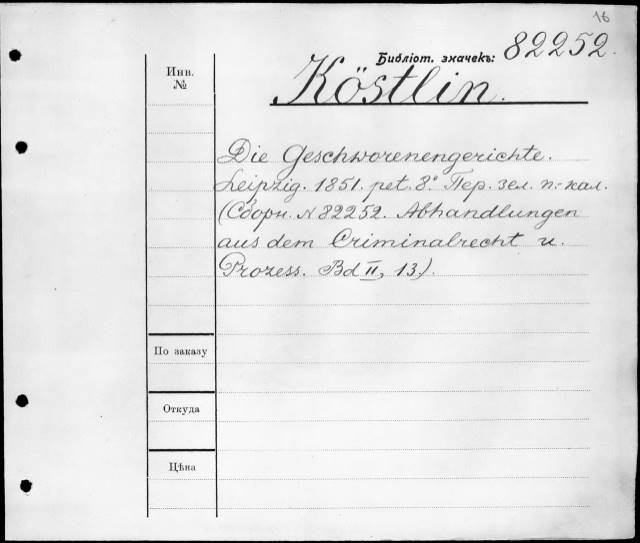 16
Библіот. значекъ: 82252.
Инв.
№
Köstlin.
Die Geschworenengerichte.
Leipzig. 1851. pet. 8.° Пер. зел. п.-кал.
(Сборн. N 82252. Abhandlungen
aus dem Criminalrecht u.
Prozess. Bd II, 13.).
По заказу
Откуда
Цѣна